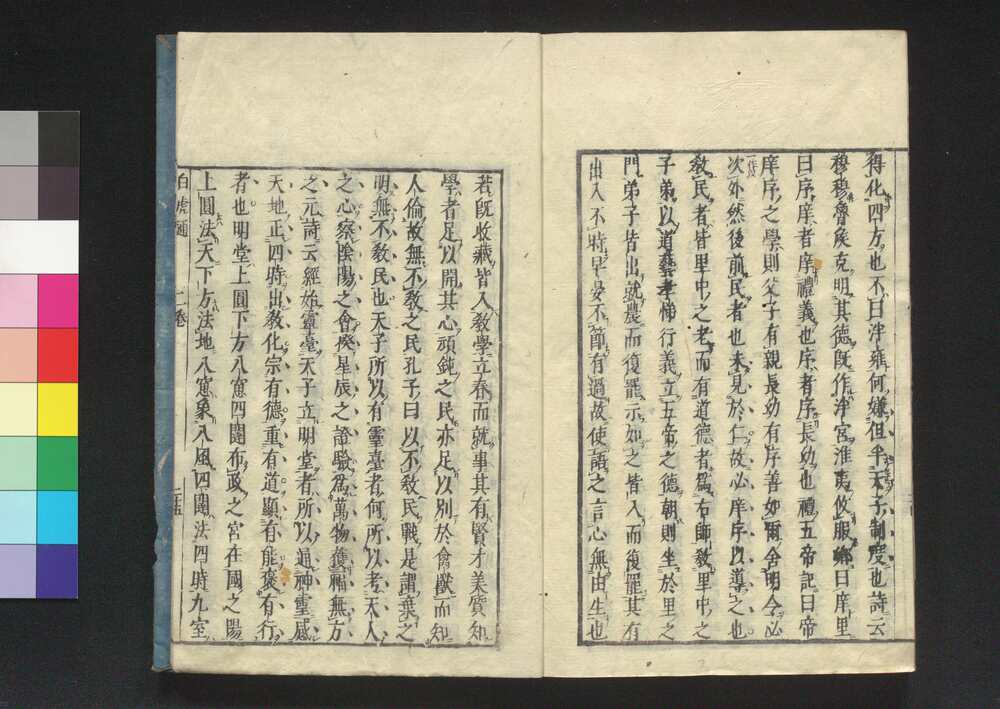 得化四方也不曰泮雍何嫌但半天子制度也詩云
穆穆魯矦克明其德旣作泮宮淮夷攸服鄉曰庠里
曰序庠者庠禮義也序者序長幼也禮五帝記曰帝
庠序之學則父子有親長幼有序善如爾舍明令必
次外然後前民者也未見於仁故必庠序以導之也
敎民者皆里中之老而有道德者爲右師敎里中之
子弟以道藝孝悌行義立五帝之德朝則坐於里之
門弟子皆出就農而復罷示如之皆入而復罷其有
出入不時早晏不節有過故使語之言心無由生也
若旣收藏皆入敎學立春而就事其有賢才美質知
學者足以開其心頑鈍之民亦足以別於禽獸而知
人倫故無不敎之民孔子曰以不敎民戰是謂棄之
明無不敎民也天子所以有靈臺者何所以考天人
之心察陰陽之會揆星辰之證驗爲萬物獲福無方
之元詩云經始靈臺天子立明堂者所以通神靈感
天地正四時出敎化宗有德重有道顯有能褒有行
者也明堂上圓下方八窻四闥布政之宮在國之陽
上圓法天下方法地八窻象八風四闥法四時九室
白虎通 二卷